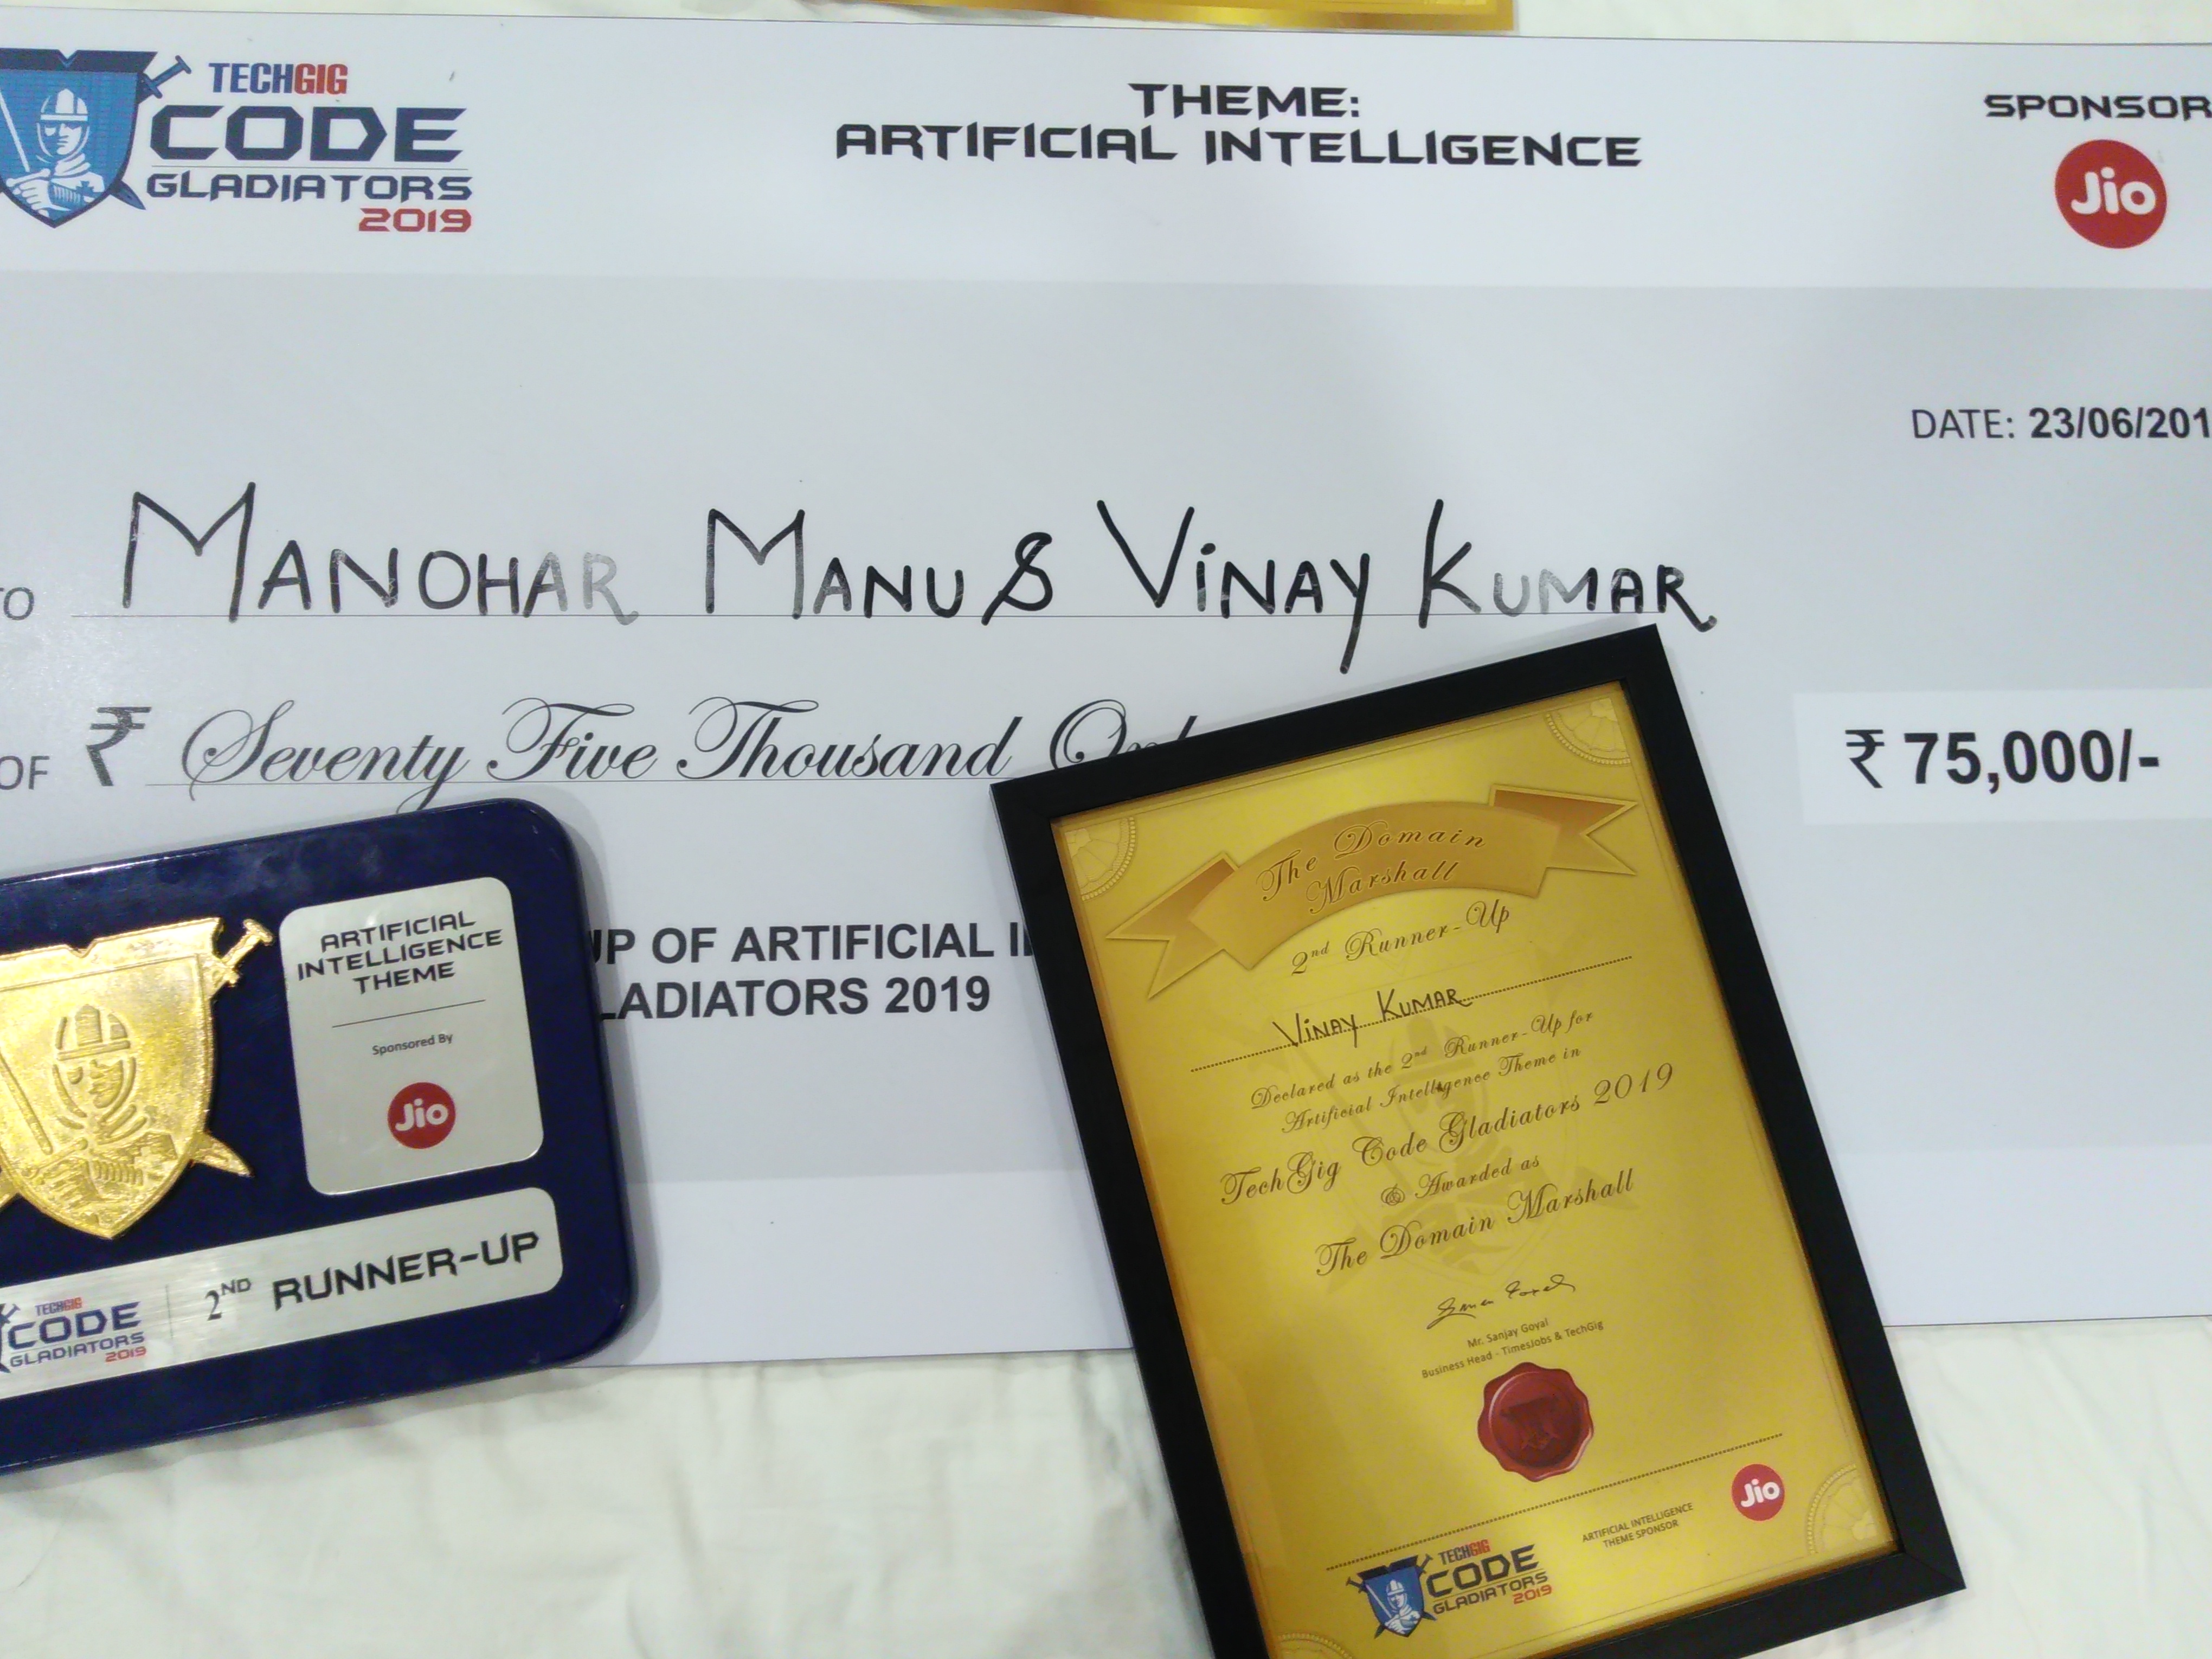 TECHGIG
CODE
GLADIATORS
2019
THEME:
ARTIFICIAL INTELLIGENCE
SPONSOR
Jio
DATE: 23/06/201
TO MANOHAR MANU & VINAY KUMAR
OF ₹ Seventy Five Thousand
₹ 75,000/-
UP OF ARTIFICIAL
LADIATORS 2019
ARTIFICIAL
INTELLIGENCE
THEME
Sponsored By
Jio
TECHGIG
CODE
GLADIATORS
2019
2ND RUNNER-UP
The Domain
Marshall
2nd Runner-Up
VINAY KUMAR
Declared as the 2nd Runner-Up for
Artificial Intelligence Theme in
TechGig Code Gladiators 2019
& Awarded as
The Domain Marshall
Mr. Sanjay Goyal
Business Head - TimesJobs & TechGig
TECHGIG
CODE
GLADIATORS
2019
ARTIFICIAL INTELLIGENCE
THEME SPONSOR
Jio